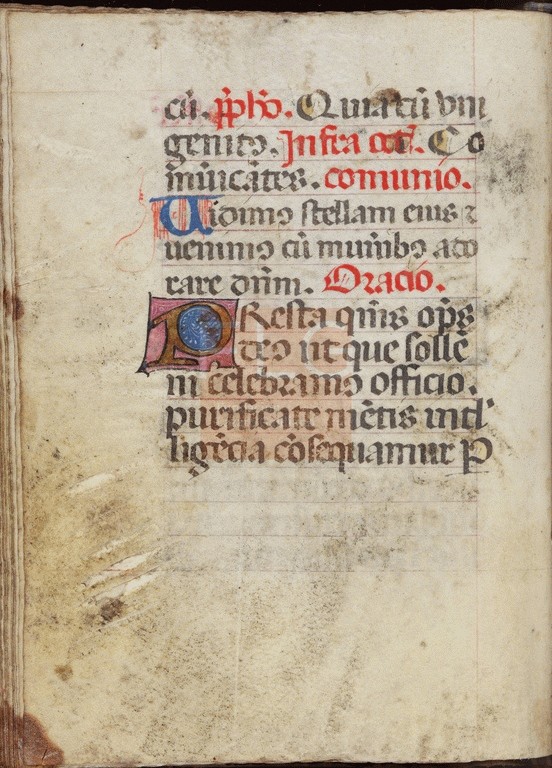 cū. p̄ph̄o. Quia cū vni
genitꝯ. Infra act̄. Co
mūicātes. comunio.
Uidimꝯ stellam eius ⁊
uenimꝯ cū munībꝯ ado
rare dn̄m. Oracio.
PResta qm̄s op̄s
deꝯ ut que solle
ni celebramꝯ officio.
purificate mētis intl'
ligēcia cōsequamur P